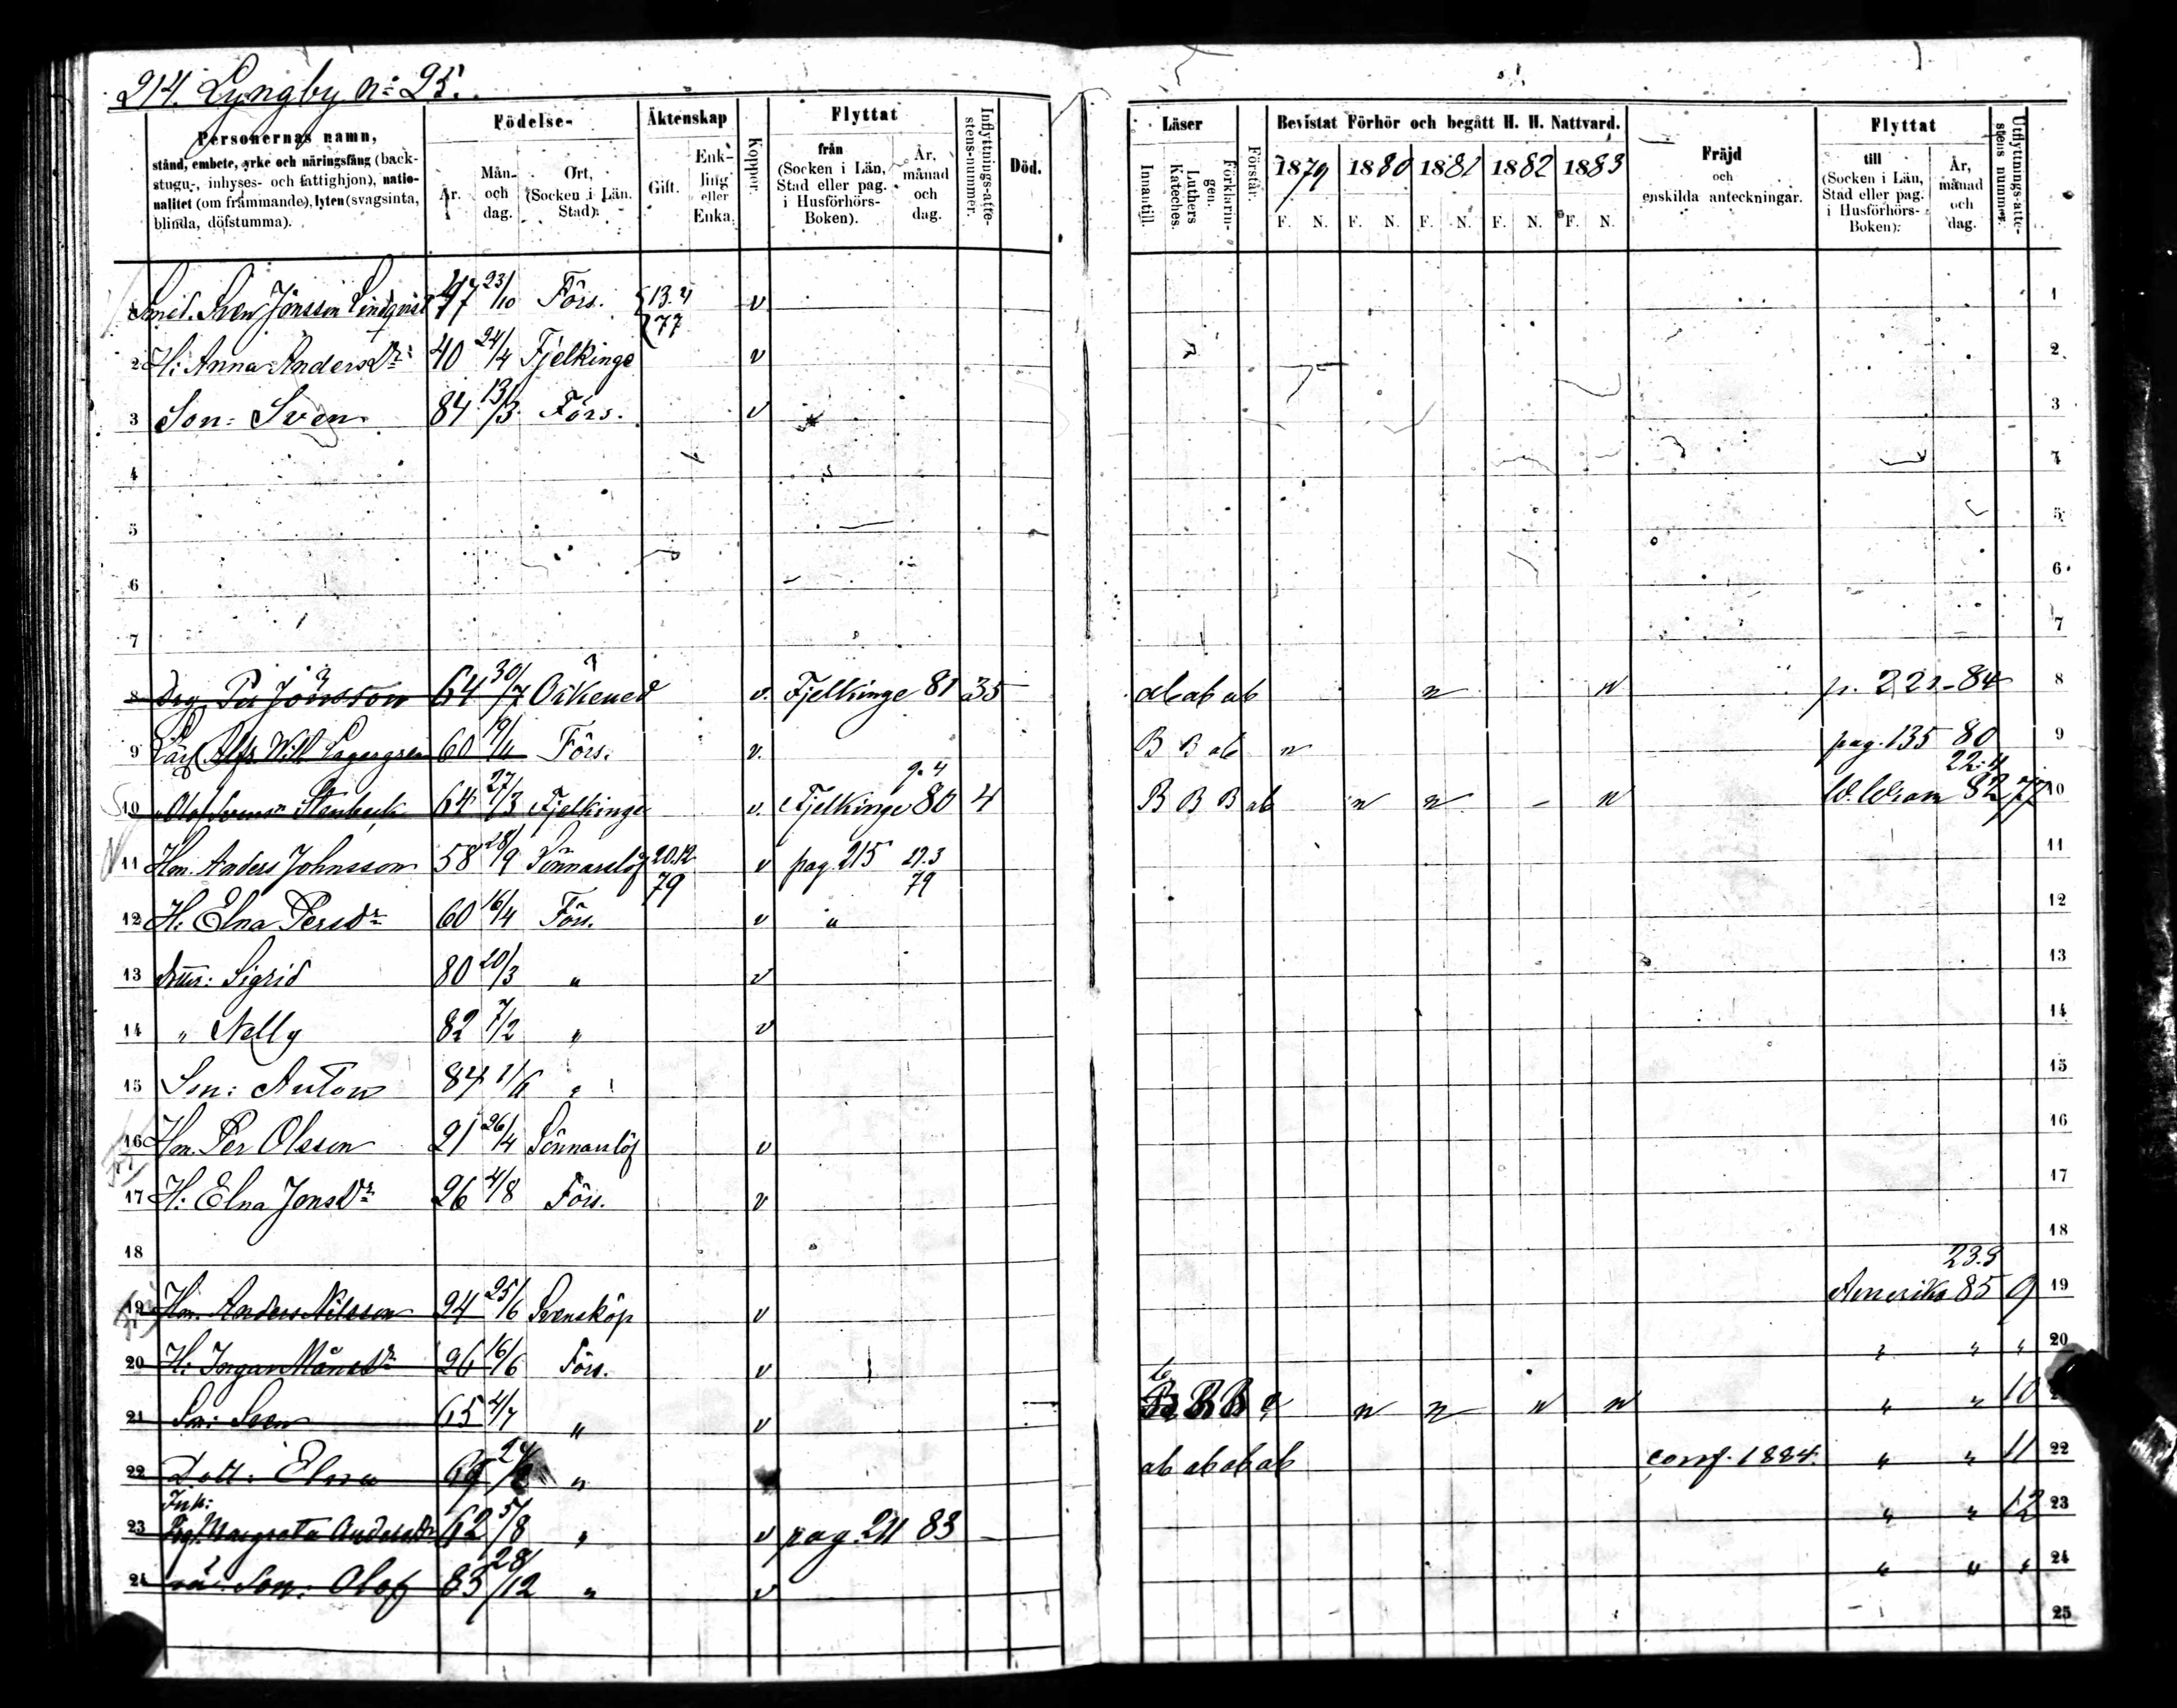 214. Lyngby No 25.
Personernas namn,
stånd, embete, yrke och näringsfång (back-
stugu-, inhyses- och fattighjon), natio-
nalitet (om främmande), lyten (svagsinta,
blinda, döfstumma).
Födelse-
År.
Mån.
och
dag.
Ort,
(Socken i Län.
Stad).
Äktenskap
Gift.
Enk-
ling
eller
Enka.
Koppor.
Flyttat
från
(Socken i Län,
Stad eller pag.
i Husförhörs-
Boken).
År,
månad
och
dag.
Inflyttnings-atte-
stens-nummer.
Död.
Läser
Innantill.
Luthers
Kateches.
Förklarin-
gen.
Förstår.
Bevistat Förhör och begått H. H. Nattvard.
1879 1880 1881 1882 1883
F. N. F. N. F. N. F. N. F. N.
Fräjd
och
enskilda anteckningar.
Flyttat
till
(Socken i Län,
Stad eller pag.
i Husförhörs-
Boken).
År,
månad
och
dag.
Utflyttnings-atte-
stens nummer.
Sven Jönsson Lindqvist 47 23/10 Förs. 13.4 77 v 1
2 H: Anna Andersdr 40 24/4 Fjelkinge v 2
3 Son: Sven 84 13/3 Förs. v 3
4
5 5
6 6
7 7
8 Drg. Per Jönsson 64 30/7 Örkened v. Fjelkinge 81 35 ab ab ab n n p. 221 - 84 8
9 Alfr. Will. Lagergren 60 Förs. v. B B ab n pag. 135 80 9
10 Olof Svensn Stenbeck 64 27/3 Fjelkinge v. Fjelkinge 80 9.4 4 B B B ab n n - n W. Wram 82 22.4 77 10
11 Hm. Anders Johnsson 58 28/9 Sönnarslöf 20.12 79 v pag. 215 21.3 79 11
12 H: Elna Persdr 60 16/4 Förs. v " 12
13 Dotter: Sigrid 80 20/3 " v 13
14 " Nelly 82 7/2 " v 14
15 Son: Anton 84 1/6 " 15
16 Hm. Per Olsson 21 26/4 Sönnarslöf v 16
17 H: Elna Jonsdr 26 4/8 Förs. v 17
18 18
19 Hm. Anders Nilsson 24 25/6 Svensköp v Amerika 85 23.3 9 19
20 H: Ingar Månsdr 26 16/6 Förs. v " " " 20
21 Son: Sven 65 4/7 " v B B n n n n " " 10
22 Dott: Elna 69 " ab ab ab ab conf. 1884. " " 11 22
23 Inh: Margreta Andersdr 62 5/8 " v pag. 211 83 - " " 12 23
24 Son: Olof 83 28/12 " v " " " 24
25